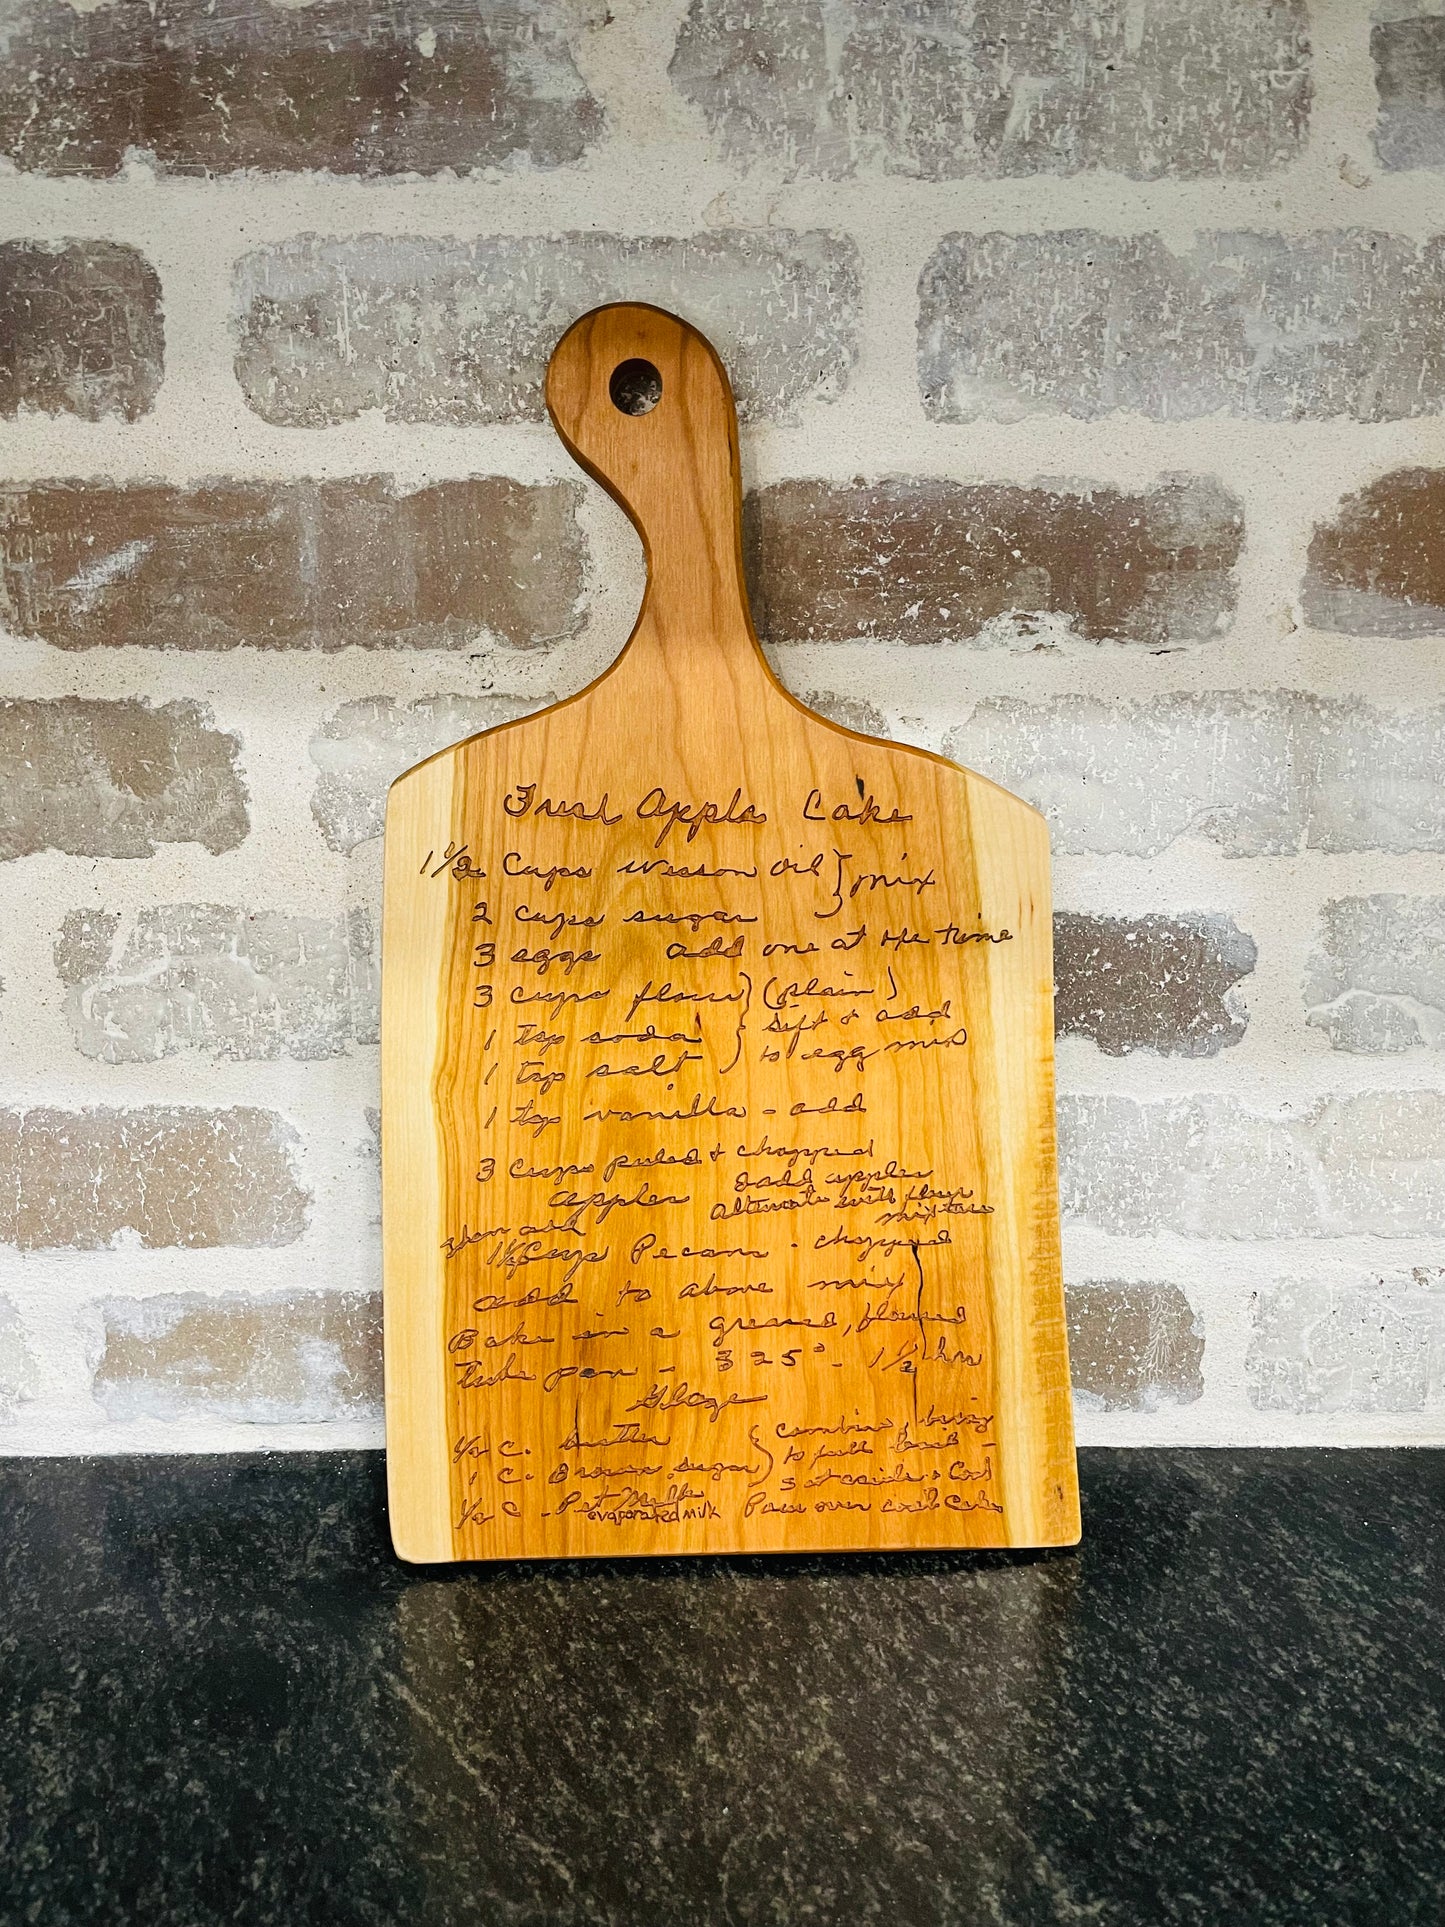 Fresh Apple Cake
1 1/2 Cups Wesson Oil } mix
2 cups sugar
3 eggs add one at the time
3 cups flour } (plain)
1 tsp soda } sift & add
1 tsp salt } to egg mix
1 tsp vanilla - add
3 Cups peeled & chopped
apples add apples
alternate with flour
mixture
then add
1 1/2 Cups Pecans - chopped
add to above mix
Bake in a greased, floured
tube pan - 325° - 1 1/2 hrs
Glaze
1/2 C. butter } Combine, bring
1 C. Brown sugar } to full boil -
Set aside & Cool
1/2 C - Pet Milk Pour over cool Cake
evaporated milk